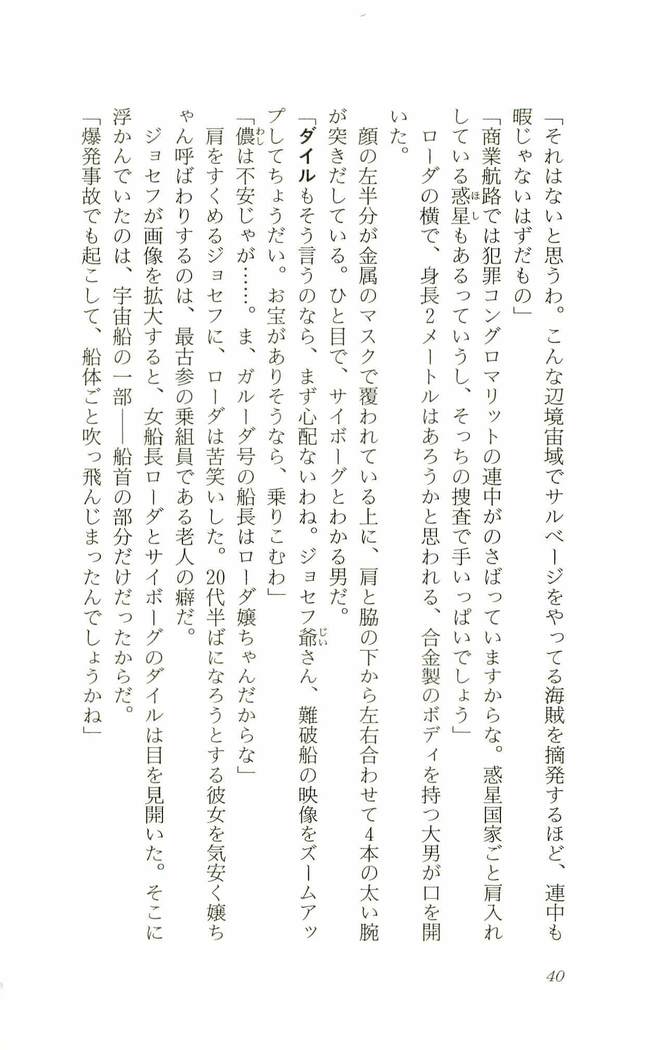 「それはないと思うわ。こんな辺境宙域でサルベージをやってる海賊を摘発するほど、連中も
暇じゃないはずだもの」
「商業航路では犯罪コングロマリットの連中がのさばっていますからな。惑星国家ごと肩入れ
している惑星もあるっていうし、そっちの捜査で手いっぱいでしょう」
ほし
ローダの横で、身長２メートルはあろうかと思われる、合金製のボディを持つ大男が口を開
いた。
顔の左半分が金属のマスクで覆われている上に、肩と脇の下から左右合わせて４本の太い腕
が突きだしている。ひと目で、サイボーグとわかる男だ。
「ダイルもそう言うのなら、まず心配ないわね。ジョセフ爺さん、難破船の映像をズームアッ
じい
プしてちょうだい。お宝がありそうなら、乗りこむわ」
「儂は不安じゃが……。ま、ガルーダ号の船長はローダ嬢ちゃんだからな」
わし
肩をすくめるジョセフに、ローダは苦笑いした。20代半ばになろうとする彼女を気安く嬢ち
ゃん呼ばわりするのは、最古参の乗組員である老人の癖だ。
ジョセフが画像を拡大すると、女船長ローダとサイボーグのダイルは目を見開いた。そこに
浮かんでいたのは、宇宙船の一部――船首の部分だけだったからだ。
「爆発事故でも起こして、船体ごと吹っ飛んじまったんでしょうかね」
40